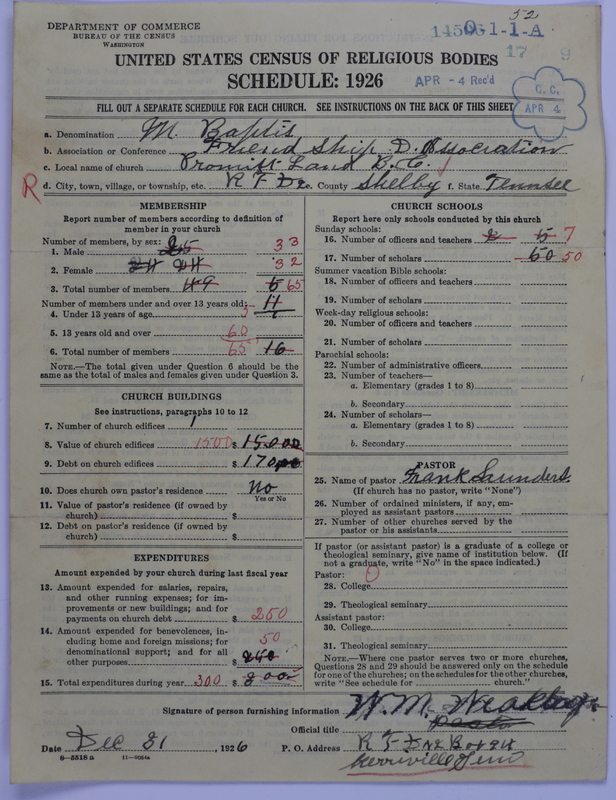 52
DEPARTMENT OF COMMERCE
BUREAU OF THE CENSUS
WASHINGTON
0-1-1-A
17 9
UNITED STATES CENSUS OF RELIGIOUS BODIES
SCHEDULE: 1926
APR - 4 Rec'd
C. C.
APR 4
FILL OUT A SEPARATE SCHEDULE FOR EACH CHURCH. SEE INSTRUCTIONS ON THE BACK OF THIS SHEET
a. Denomination M. Baptis
b. Association or Conference Friend Ship D. Association
c. Local name of church Promist Land B. C.
R d. City, town, village, or township, etc. R F D e. County Shelby f. State Tennsee
MEMBERSHIP
Report number of members according to definition of member in your church
Number of members, by sex:
1. Male 25 33
2. Female 24 24 32
3. Total number of members 49 65
Number of members under and over 13 years old:
4. Under 13 years of age 5 11
5. 13 years old and over 60
6. Total number of members 65 16
NOTE.—The total given under Question 6 should be the
same as the total of males and females given under Question 3.
CHURCH BUILDINGS
See instructions, paragraphs 10 to 12
7. Number of church edifices 1
8. Value of church edifices 1500 $ 15000
9. Debt on church edifices $ 170
10. Does church own pastor's residence No
Yes or No
11. Value of pastor's residence (if owned by
church) $
12. Debt on pastor's residence (if owned by
church) $
EXPENDITURES
Amount expended by your church during last fiscal year
13. Amount expended for salaries, repairs,
and other running expenses; for im-
provements or new buildings; and for
payments on church debt $ 250
14. Amount expended for benevolences, in-
cluding home and foreign missions; for
denominational support; and for all
other purposes $ 50
15. Total expenditures during year 300 $
CHURCH SCHOOLS
Report here only schools conducted by this church
Sunday schools:
16. Number of officers and teachers 2 5 7
17. Number of scholars 50 50
Summer vacation Bible schools:
18. Number of officers and teachers
19. Number of scholars
Week-day religious schools:
20. Number of officers and teachers
21. Number of scholars
Parochial schools:
22. Number of administrative officers
23. Number of teachers—
a. Elementary (grades 1 to 8)
b. Secondary
24. Number of scholars—
a. Elementary (grades 1 to 8)
b. Secondary
PASTOR
25. Name of pastor Frank Saunders
(If church has no pastor, write "None")
26. Number of ordained ministers, if any, em-
ployed as assistant pastors
27. Number of other churches served by the
pastor or his assistants
If pastor (or assistant pastor) is a graduate of a college or
theological seminary, give name of institution below. (If
not a graduate, write "No" in the space indicated.)
Pastor: 0
28. College
29. Theological seminary
Assistant pastor:
30. College
31. Theological seminary
NOTE.—Where one pastor serves two or more churches,
Questions 28 and 29 should be answered only on the schedule
for one of the churches; on the schedules for the other churches,
write "See schedule for church."
Signature of person furnishing information W. M.
Official title
Date Dec 31, 1926 P. O. Address R F D
8—5518 a 11—9064a Kerrville Tenn